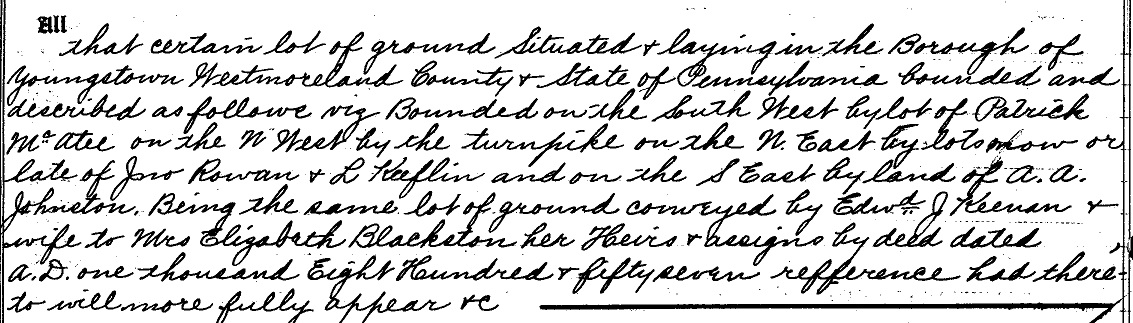 All
that certain lot of ground Situated & laying in the Borough of
Youngstown Westmoreland County & State of Pennsylvania bounded and
described as follows viz Bounded on the South West by lot of Patrick
McAtee on the N West by the turnpike on the N. East by lots now or
late of Jno Rowan & L Keflin and on the S East by land of A. A.
Johnston. Being the same lot of ground conveyed by Edwd. J Keenan &
wife to Mrs Elizabeth Blackston her Heirs & assigns by deed dated
A.D. one thousand Eight Hundred & fifty seven refference had there-
to will more fully appear &c